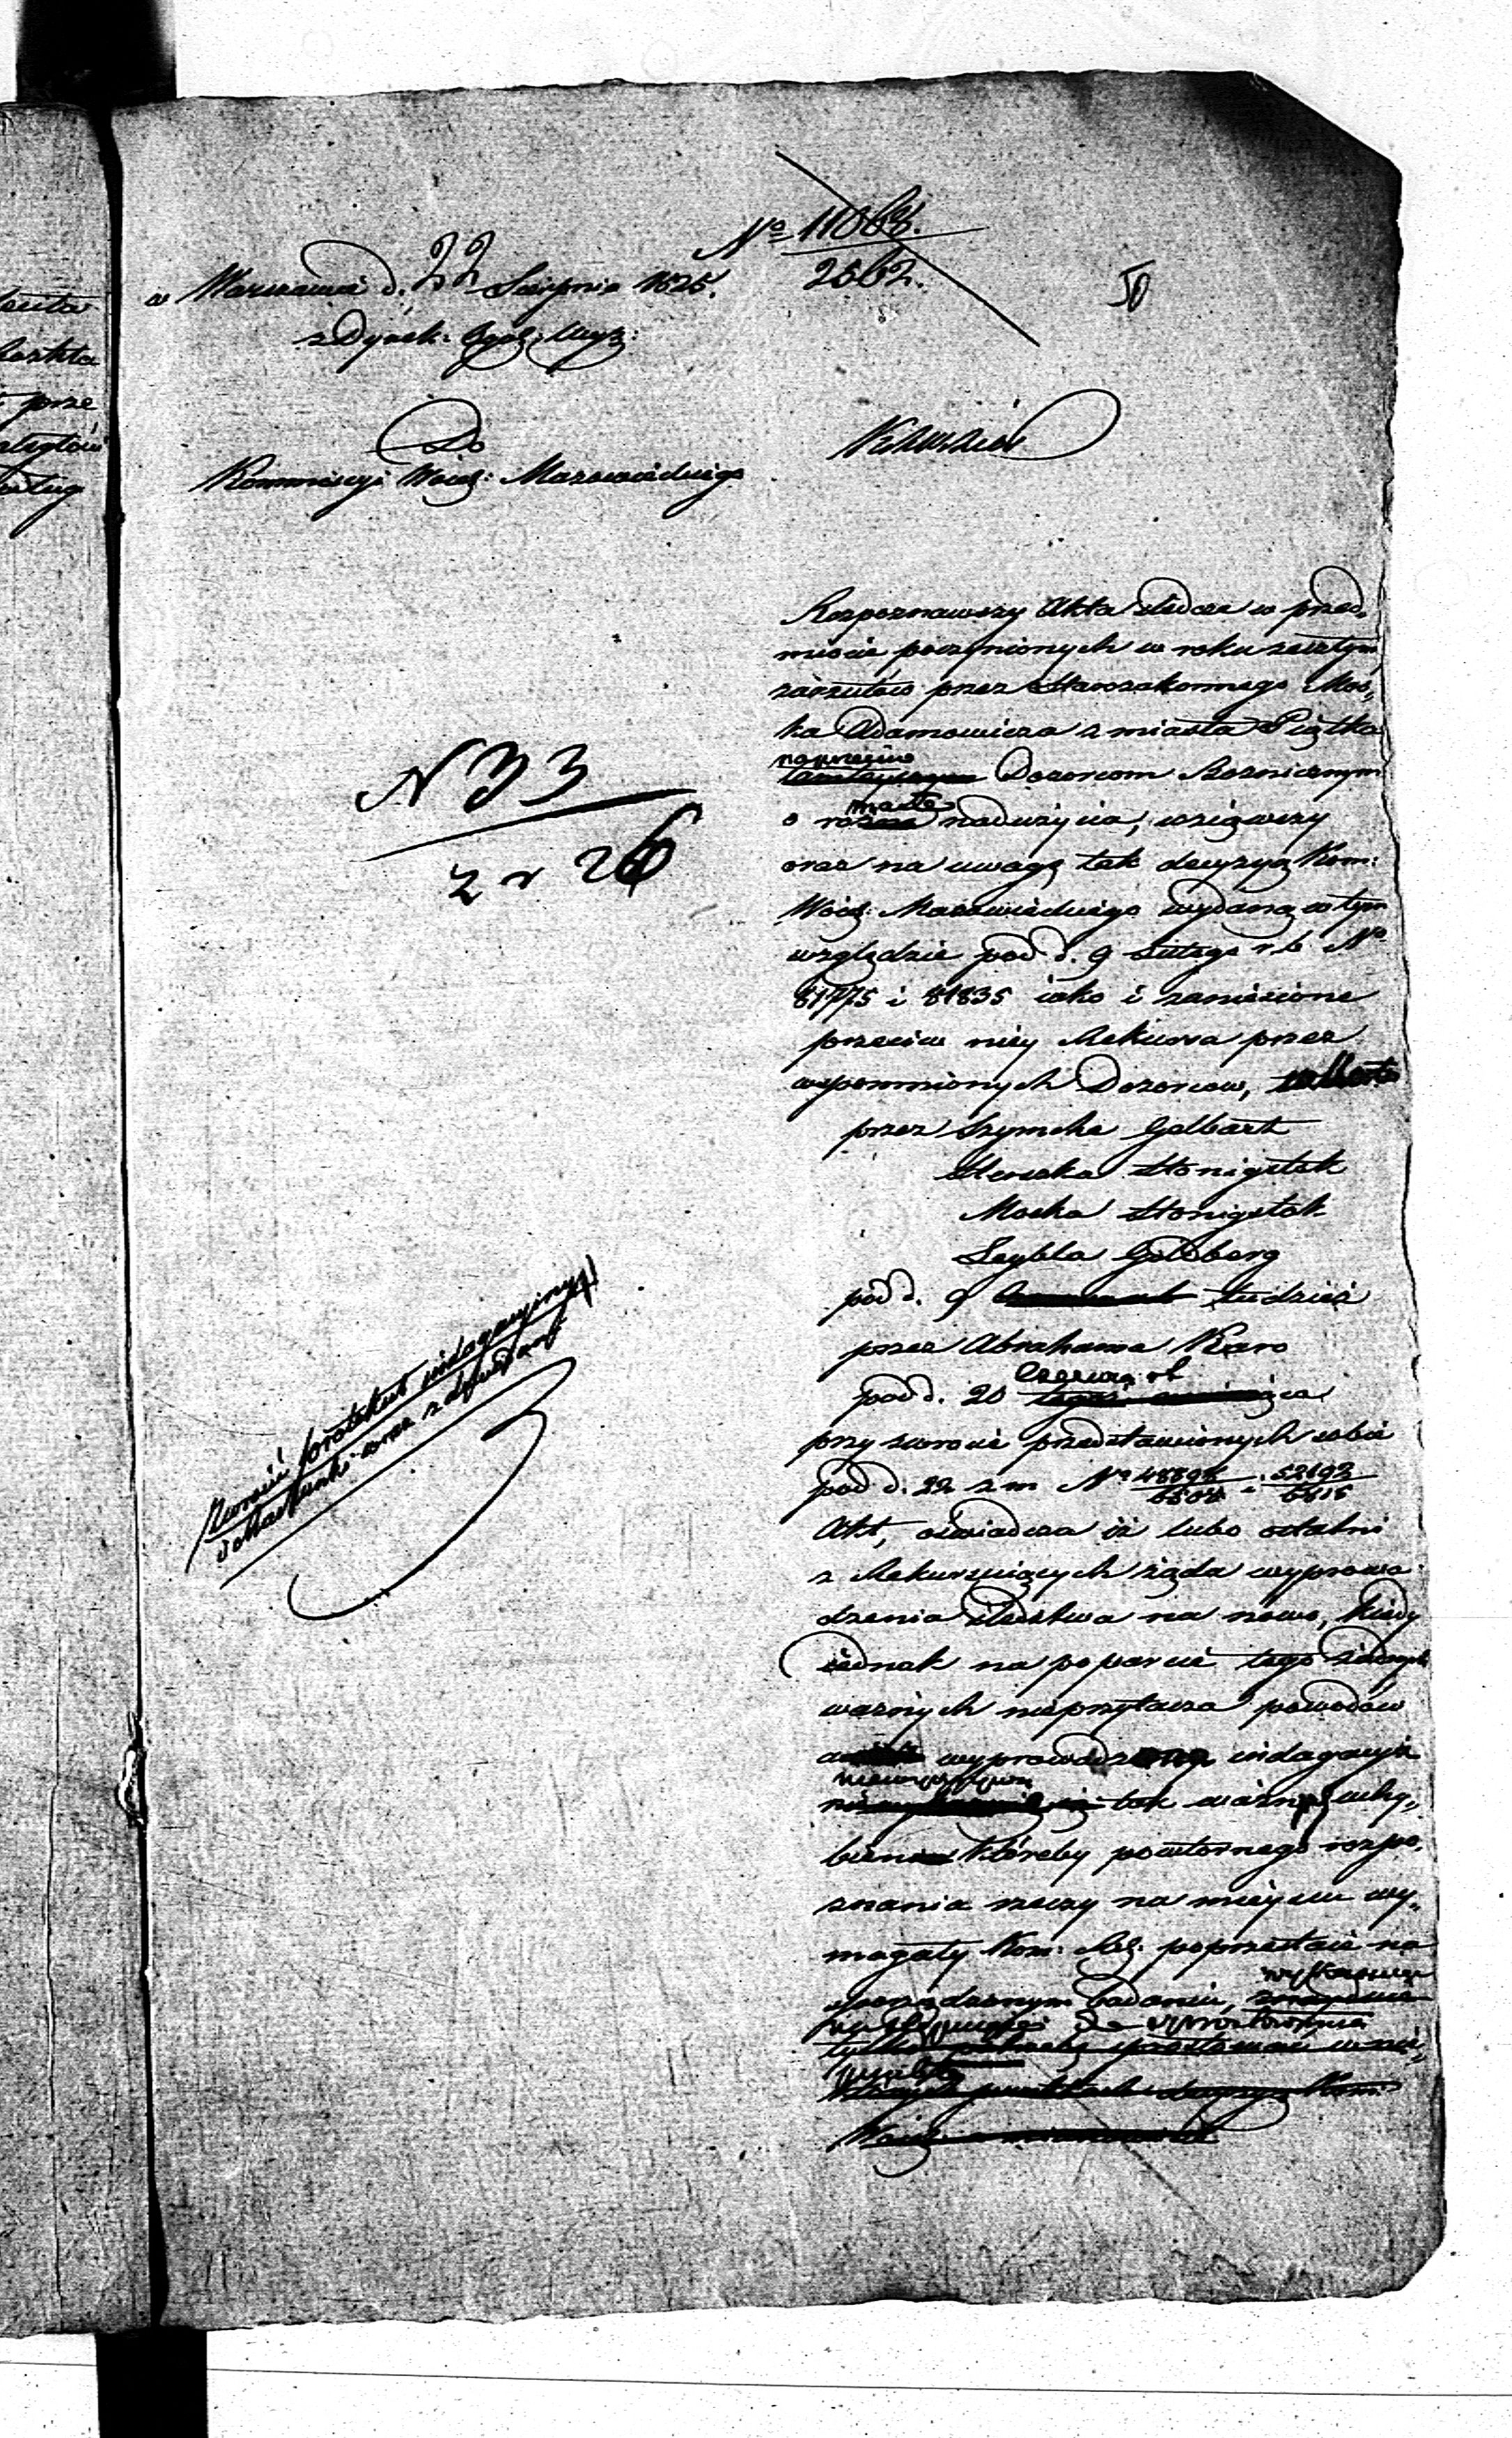 N° 11063.
2562.
50
w Warszawie d. 22 Sierpnia 1825.
z Dyrek:
Do
Kommissyi Wódz: Mazowieckiego
N 33
z r 26
Zwrócić protokuł indagacyiny
oraz z
Rozpoznawszy Akta śledcze w przed,
miocie poczynionych w roku zeszłym
zarzutów przez Starozakonnego Moś,
ka Adamowicza z miasta Piątku
naprzeciw Dozorcom Bożnicznym
o nadużycia, wziąwszy
oraz na uwagę tak decyzyą Kom:
Wódz: Mazowieckiego wydaną w tym
względzie pod d. 9 Lutego r. b. N°
81775 i 81835 iako i zaniesione
przeciw niey Rekursa przez
wspomnionych Dozorców,
przez Szymcha Gelbart
Herszka Honigstok
Moszka Honigstok
Leybla Goldberg
pod d. 9 tudzież
przez Abrahama Karo
pod d. 20 Czerwca rb
przy zwrocie przedstawionych sobie
pod d. 22 z m N° 48898/6504 i 52192/6815
Akt, oświadcza iż lubo ostatni
z Rekursuiących żąda wyprowa
dzenia śledztwa na nowo, kiedy
iednak na poparcie tego żadnych
ważnych nieprzytacza powodów
a wyprowadzona indagacyia
tak ważnych uchy,
bień któreby powtórnego rozpo,
znania rzeczy na mieyscu wy,
magały Kom: Rz: poprzestaie na
uporządkowanym badaniu,
do sprostowania